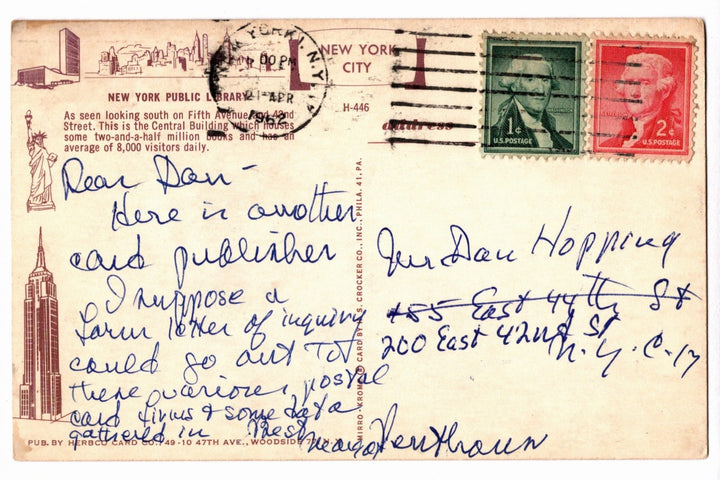 NEW YORK, N.Y.
00 PM
21 APR
1962
NEW YORK
CITY
1¢
U.S. POSTAGE
2¢
U.S. POSTAGE
NEW YORK PUBLIC LIBRARY
H-446
address
As seen looking south on Fifth Avenue and 42nd
Street. This is the Central Building which houses
some two-and-a-half million books and has an
average of 8,000 visitors daily.
Dear Dan -
Here is another
card publisher
I suppose a
form letter of inquiry
could go out to
these various postal
card firms & some data
gathered in Best
Dan Hopping
155 East 44th St
200 East 42nd St
N.Y.C-17
MIRRO-KROME CARD BY H.S. CROCKER CO., INC., PHILA. 41, PA.
PUB. BY HERBCO CARD CO., 49-10 47TH AVE., WOODSIDE 77, N.Y.